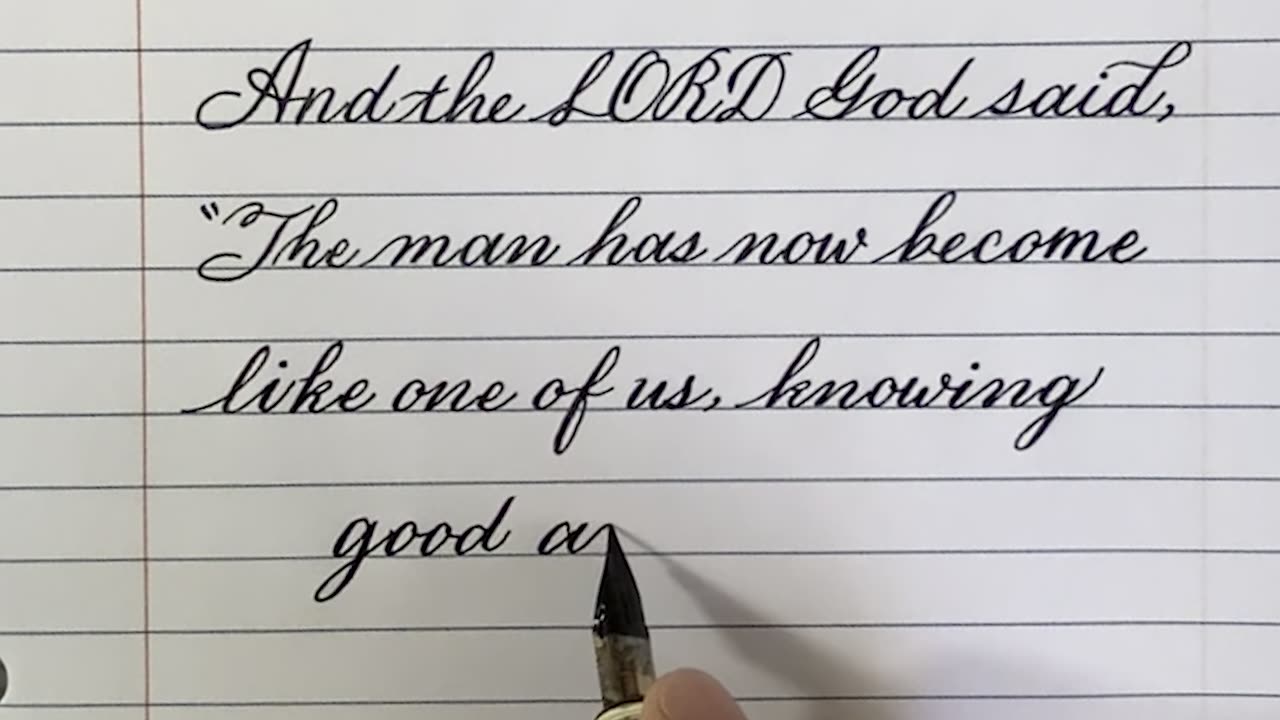 And the LORD God said,
"The man has now become
like one of us, knowing
good an